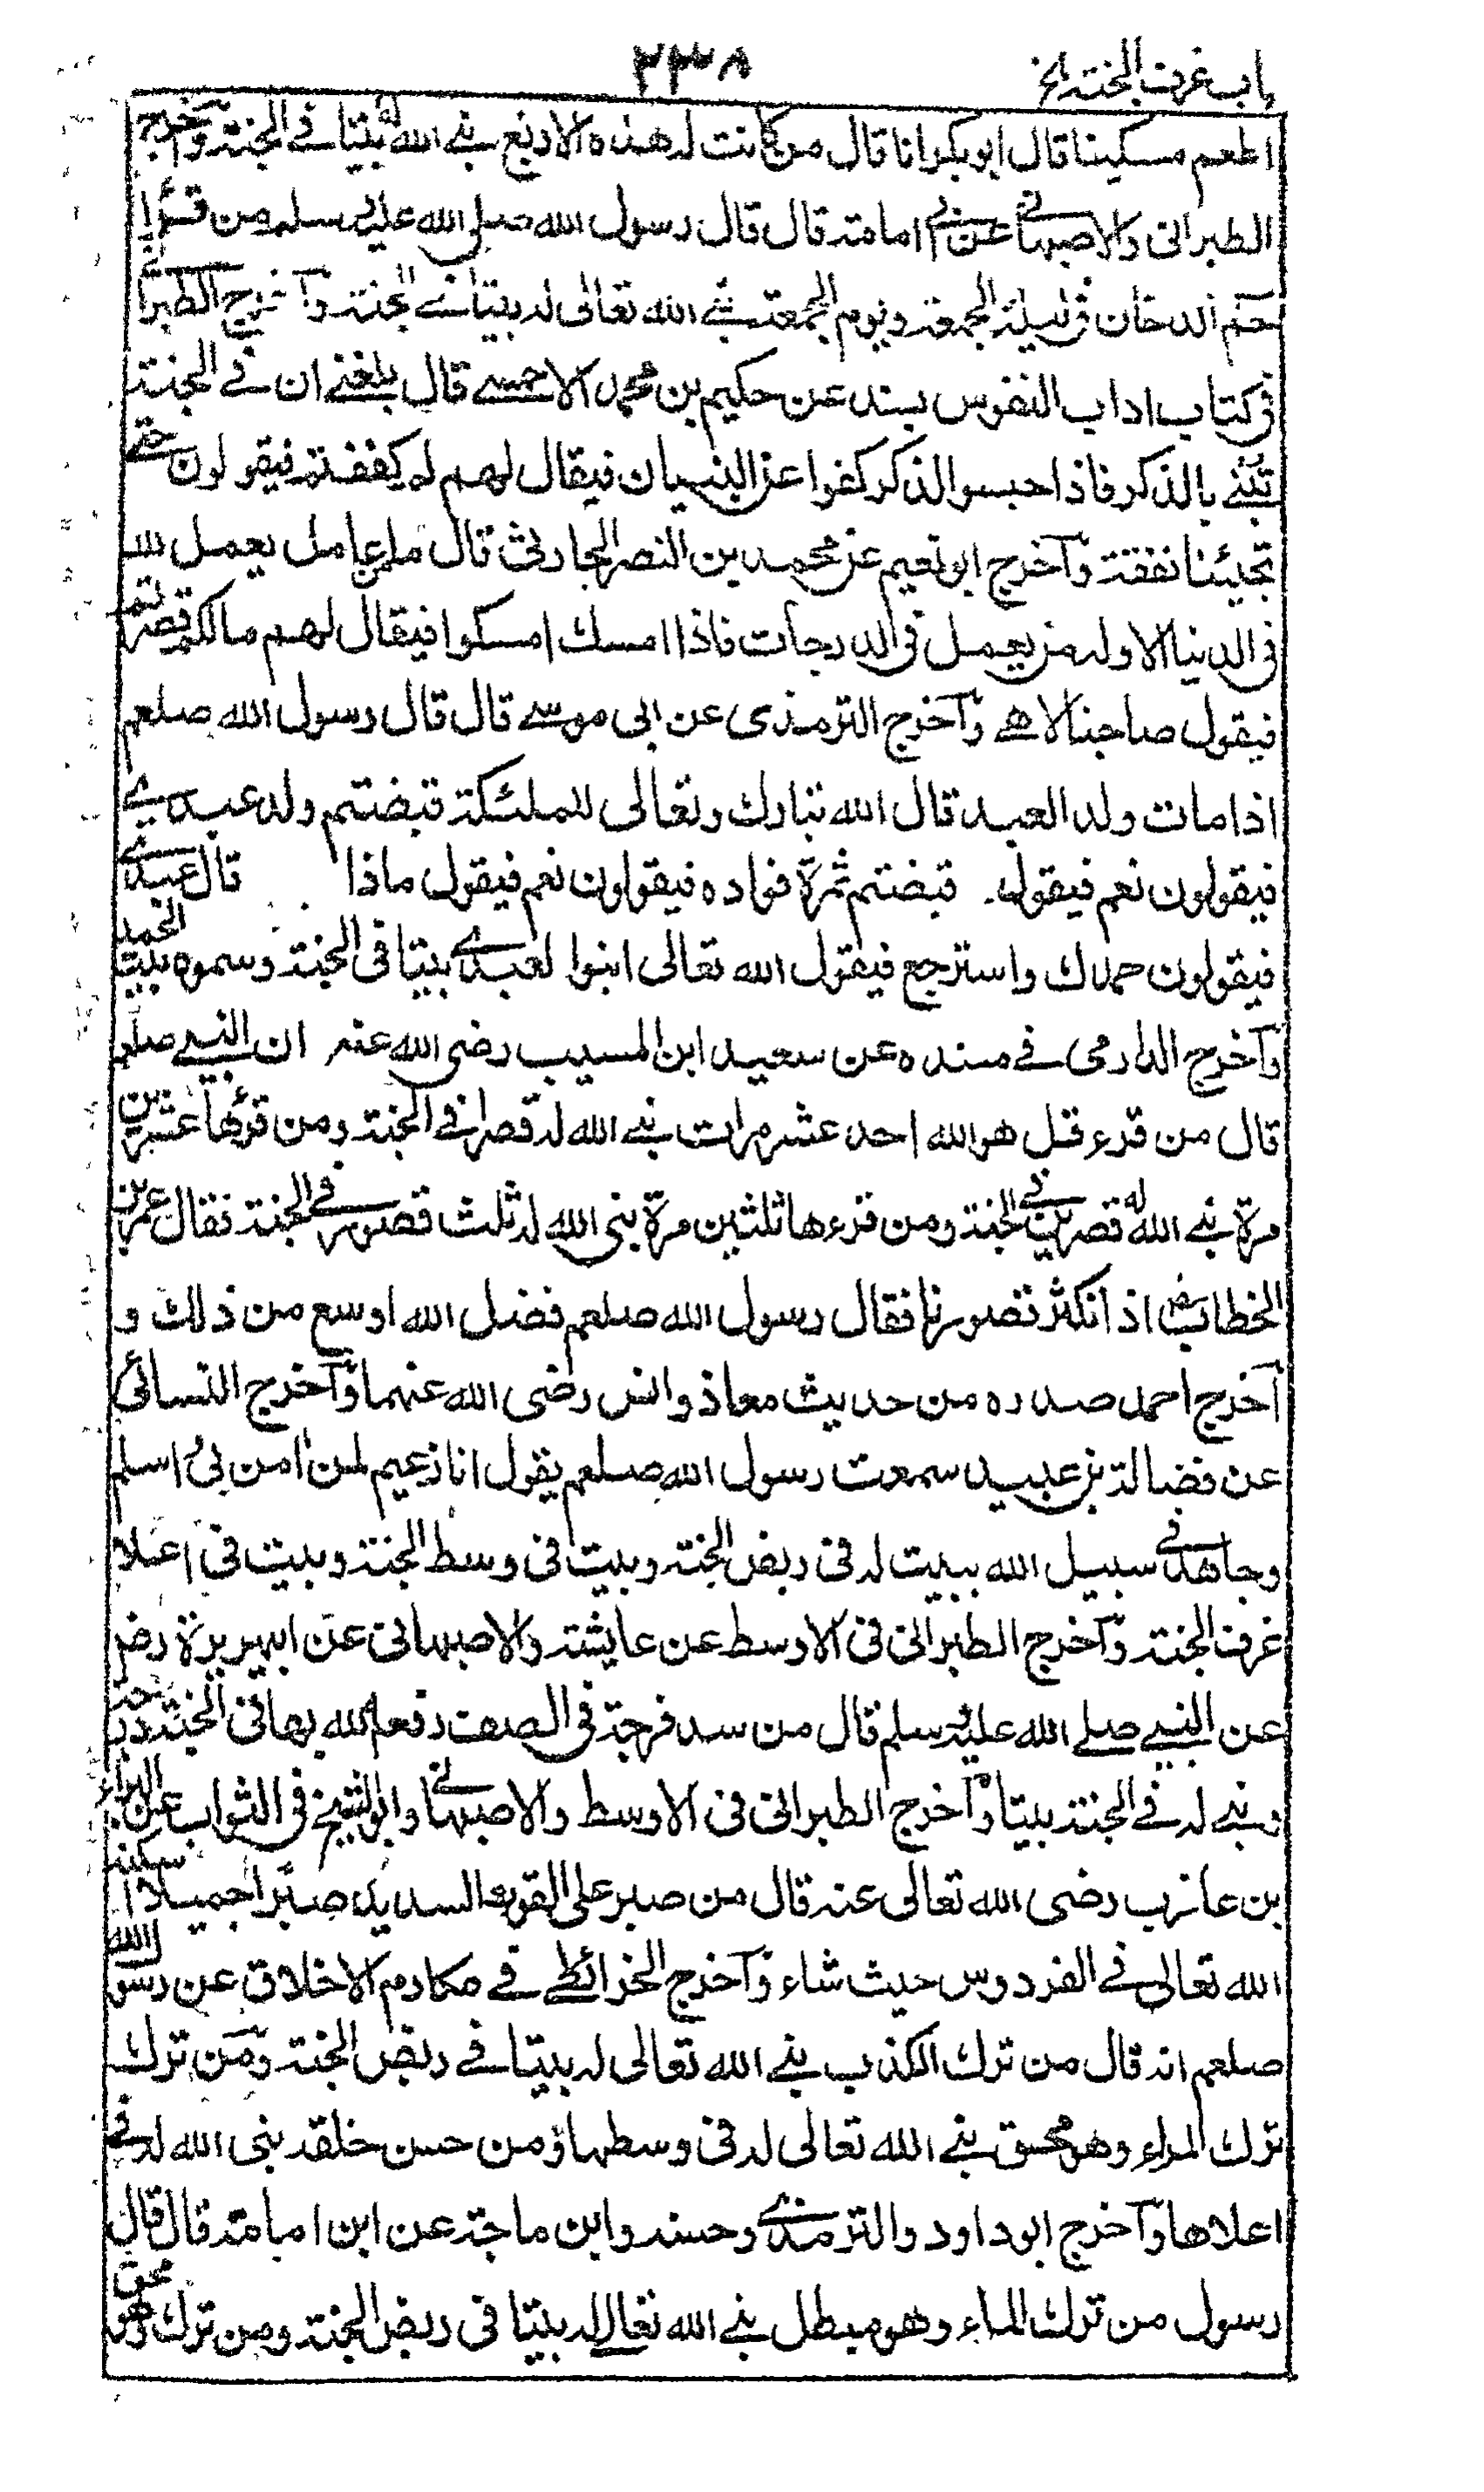 باب غرف الجنة الخ
٢٣٨
اطعم مسكينا قال ابو بكر انا قال من كانت له هذه الاربع بنى الله له بيتا فى الجنة وآخرج
الطبرانى والاصبهانى عن ابى امامة قال قال رسول الله صلى الله عليه وسلم من قرأ
حم الدخان فى ليلة الجمعة ويوم الجمعة بنى الله تعالى له بيتا فى الجنة وآخرج الطبرانى
فى كتاب اداب النفوس بسنده عن حكيم بن محمد الاحمسى قال بلغنى ان فى الجنة
تبنى بالذكر فاذا حبسوا الذكر كفوا عن البنيان فيقال لهم لم كففتم فيقولون حتى
تجيئنا نفقة وآخرج ابو نعيم عن محمد بن النضر الحارثى قال ما من عامل يعمل لله
فى الدنيا الا وله من يعمل فى الدرجات فاذا امسك امسكوا فيقال لهم مالكم قصرتم
فيقول صاحبنا لاهى وآخرج الترمذى عن ابى موسى قال قال رسول الله صلعم
اذا مات ولد العبد قال الله تبارك وتعالى للملئكة قبضتم ولد عبدى
فيقولون نعم فيقول قبضتم ثمرة فواده فيقولون نعم فيقول ماذا قال عبدى
فيقولون حمدك واسترجع فيقول الله تعالى ابنوا لعبدى بيتا فى الجنة وسموه بيت الحمد
وآخرج الدارمى فى مسنده عن سعيد ابن المسيب رضى الله عنه ان النبى صلعم
قال من قرء قل هو الله احد عشر مرات بنى الله له قصرا فى الجنة ومن قرءها عشرين
مرة بنى الله له قصرين فى الجنة ومن قرءها ثلثين مرة بنى الله له ثلث قصور فى الجنة فقال عمر بن
الخطاب رض اذا نكثر قصورنا فقال رسول الله صلعم فضل الله اوسع من ذلك و
آخرج احمد صدره من حديث معاذ وانس رضى الله عنهما وآخرج النسائى
عن فضالة بن عبيد سمعت رسول الله صلعم يقول انا زعيم لمن امن بى و اسلم
وجاهد فى سبيل الله ببيت له فى ربض الجنة وبيت فى وسط الجنة وبيت فى اعلا
غرف الجنة وآخرج الطبرانى فى الاوسط عن عايشة والاصبهانى عن ابيهريرة رض
عن النبى صلى الله عليه وسلم قال من سد فرجة فى الصف رفعه الله بها فى الجنة درجة
وبنى له فى الجنة بيتا وآخرج الطبرانى فى الاوسط والاصبهانى وابو الشيخ فى الثواب عن البراء
بن عازب رضى الله تعالى عنه قال من صبر على القوت الشديد صبرا جميلا اسكنه
الله تعالى فى الفردوس حيث شاء وآخرج الخرائطى فى مكارم الاخلاق عن رسول الله
صلعم انه قال من ترك الكذب بنى الله تعالى له بيتا فى ربض الجنة ومن ترك
ترك المراء وهو محق بنى الله تعالى له فى وسطها ومن حسن خلقه بنى الله له فى
اعلاها وآخرج ابو داود والترمذى وحسنه وابن ماجة عن ابن امامة قال قال
رسول من ترك المراء وهو مبطل بنى الله تعالى له بيتا فى ربض الجنة ومن ترك وهو محق